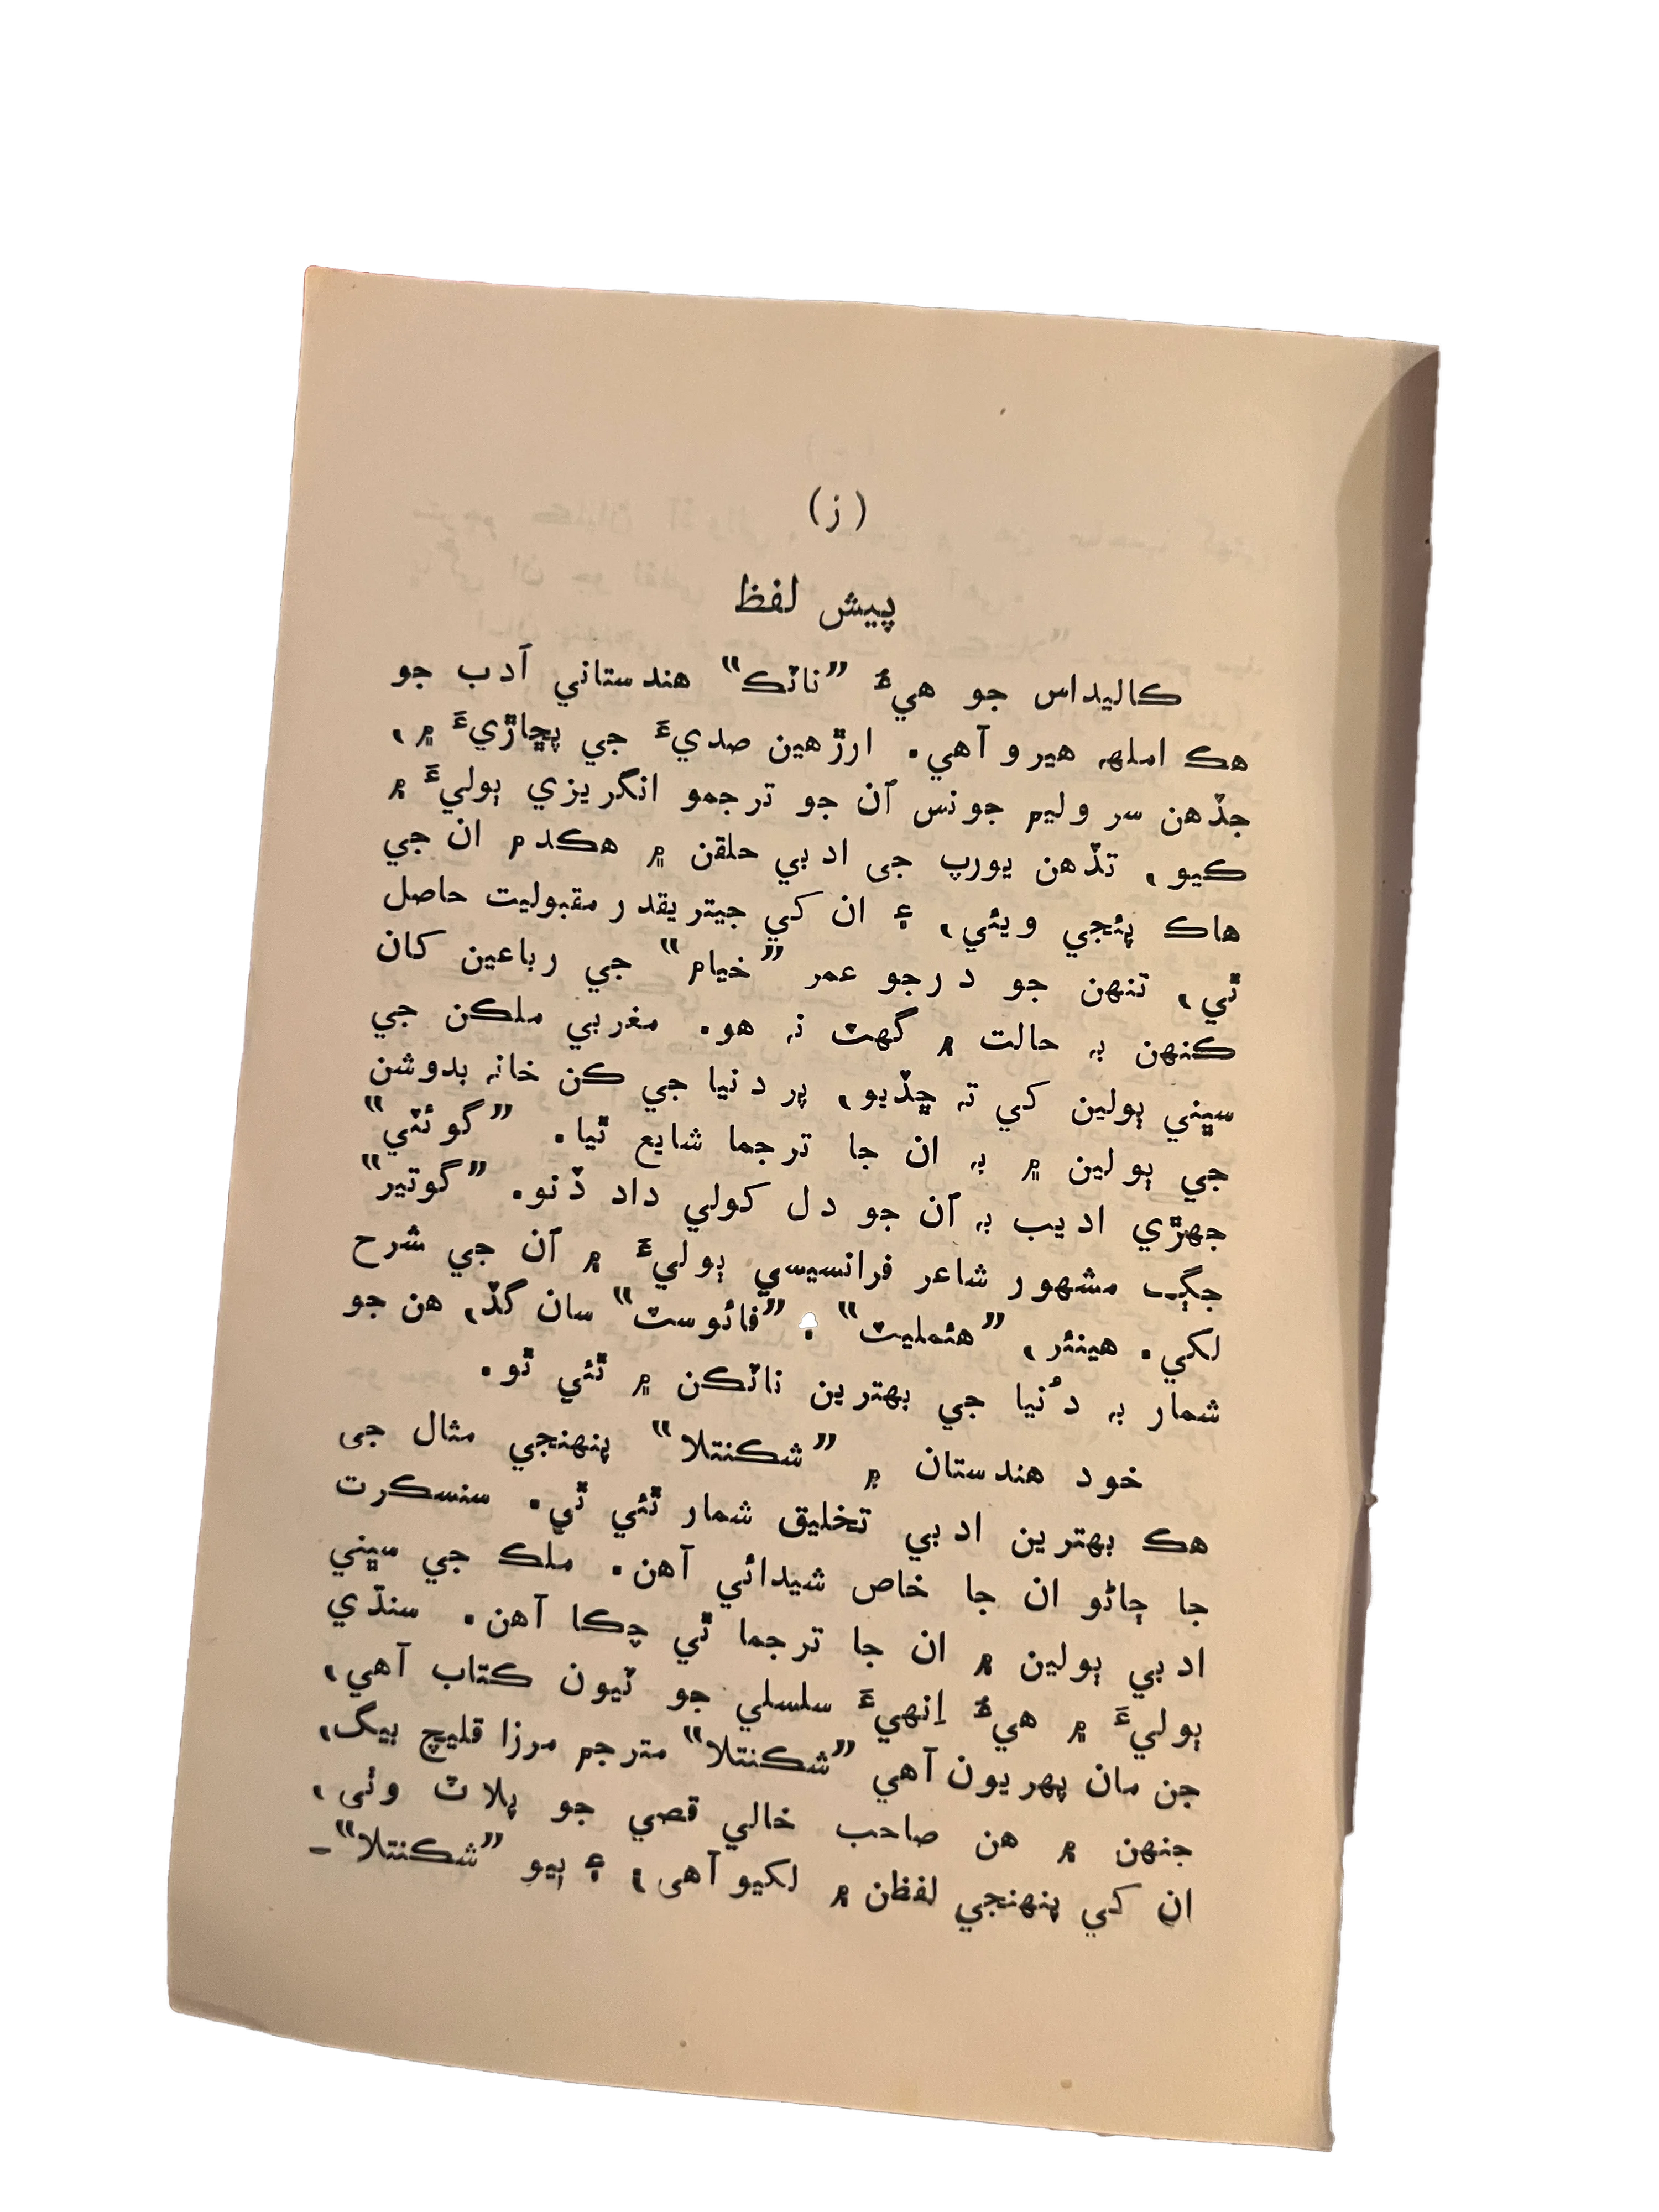 (ز)
پيش لفظ
ڪاليداس جو هيءُ ”ناٽڪ“ هندستاني اَدب جو
هڪ املهہ هيرو آهي. ارڙهين صديءَ جي پڇاڙيءَ ۾،
جڏهن سر وليم جونس اُن جو ترجمو انگريزي ٻوليءَ ۾
ڪيو، تڏهن يورپ جي ادبي حلقن ۾ هڪدم ان جي
هاڪ پئجي ويئي، ۽ ان کي جيتريقدر مقبوليت حاصل
ٿي، تنهن جو درجو عمر ”خيام“ جي رباعين کان
ڪنهن بہ حالت ۾ گهٽ نہ هو. مغربي ملڪن جي
سڀني ٻولين کي تہ ڇڏيو، پر دنيا جي ڪن خانہ بدوشن
جي ٻولين ۾ بہ ان جا ترجما شايع ٿيا. ”گوئٽي“
جهڙي اديب بہ اُن جو دل کولي داد ڏنو. ”گوتير“
جڳ مشهور شاعر فرانسيسي ٻوليءَ ۾ اُن جي شرح
لکي. هينئر، ”هئمليٽ“ . ”فائوسٽ“ سان گڏ، هن جو
شمار بہ دُنيا جي بهترين ناٽڪن ۾ ٿئي ٿو.
خود هندستان ۾ ”شڪنتلا“ پنهنجي مثال جي
هڪ بهترين ادبي تخليق شمار ٿئي ٿي. سنسڪرت
جا ڄاڻو ان جا خاص شيدائي آهن. ملڪ جي سڀني
ادبي ٻولين ۾ ان جا ترجما ٿي چڪا آهن. سنڌي
ٻوليءَ ۾ هيءُ اِنهيءَ سلسلي جو ٽيون ڪتاب آهي،
جن مان پهريون آهي ”شڪنتلا“ مترجم مرزا قليچ بيگ،
جنهن ۾ هن صاحب خالي قصي جو پلاٽ وٺي،
ان کي پنهنجي لفظن ۾ لکيو آهي؛ ۽ ٻيو ”شڪنتلا“-